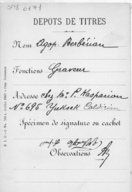 DEPOTS DE TITRES
Nom Agop Berbérian
Fonctions Graveur
Adresse chez Mr P. Kasparian
No 695 Yuksek Caldirim
Spécimen de signature ou cachet
Observations